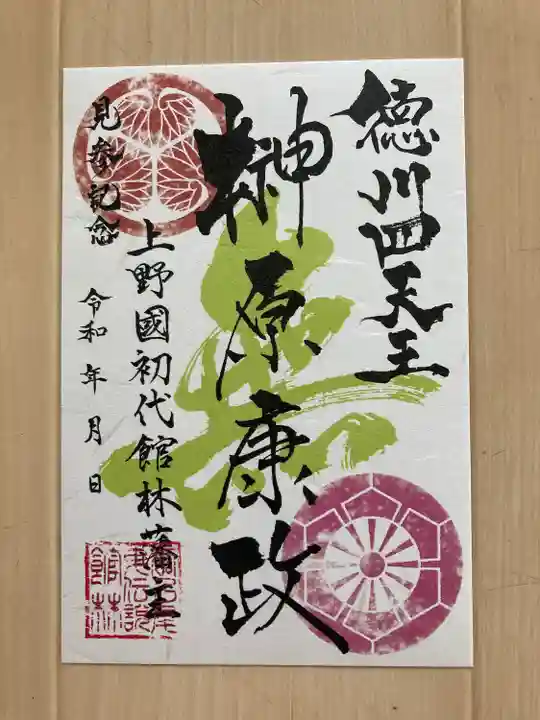 徳川四天王
榊原康政
上野國初代館林藩主
見参記念
令和 年 月 日
館林